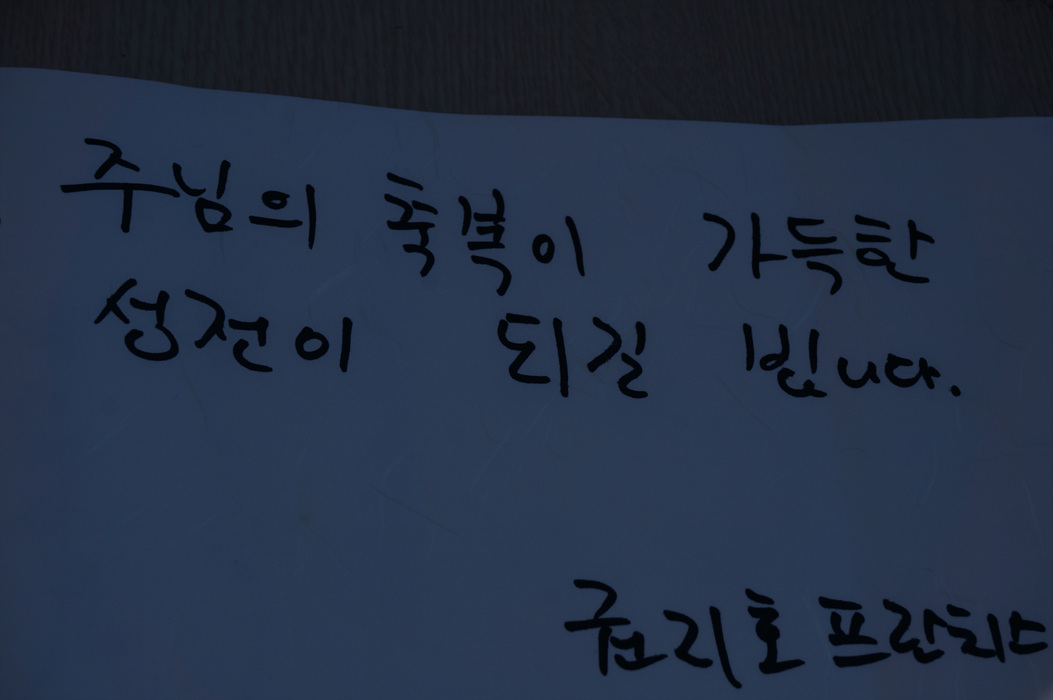 주님의 축복이 가득한
성전이 되길 빕니다.
권리호 프란치스